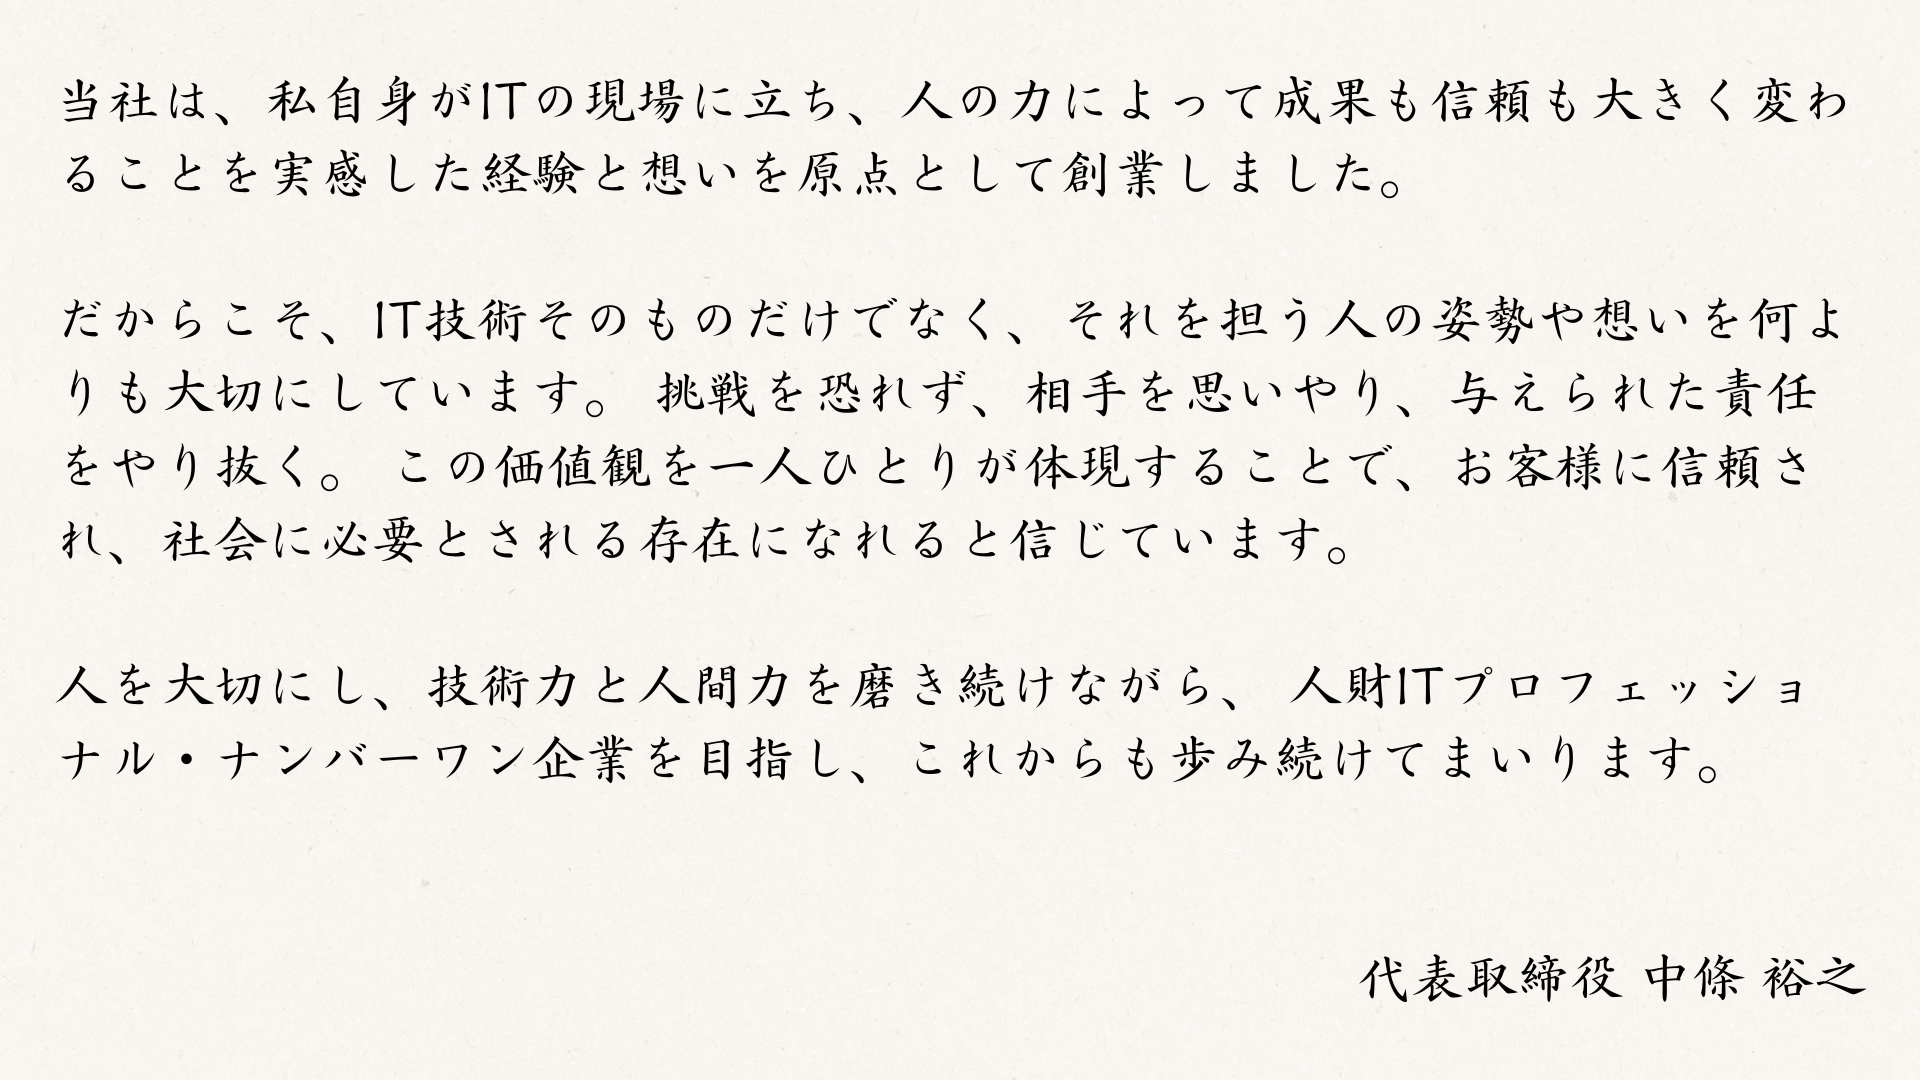 当社は、私自身がITの現場に立ち、人の力によって成果も信頼も大きく変わ
ることを実感した経験と想いを原点として創業しました。
だからこそ、IT技術そのものだけでなく、それを担う人の姿勢や想いを何よ
りも大切にしています。 挑戦を恐れず、相手を思いやり、与えられた責任
をやり抜く。 この価値観を一人ひとりが体現することで、お客様に信頼さ
れ、社会に必要とされる存在になれると信じています。
人を大切にし、技術力と人間力を磨き続けながら、 人財ITプロフェッショ
ナル・ナンバーワン企業を目指し、これからも歩み続けてまいります。
代表取締役 中條 裕之